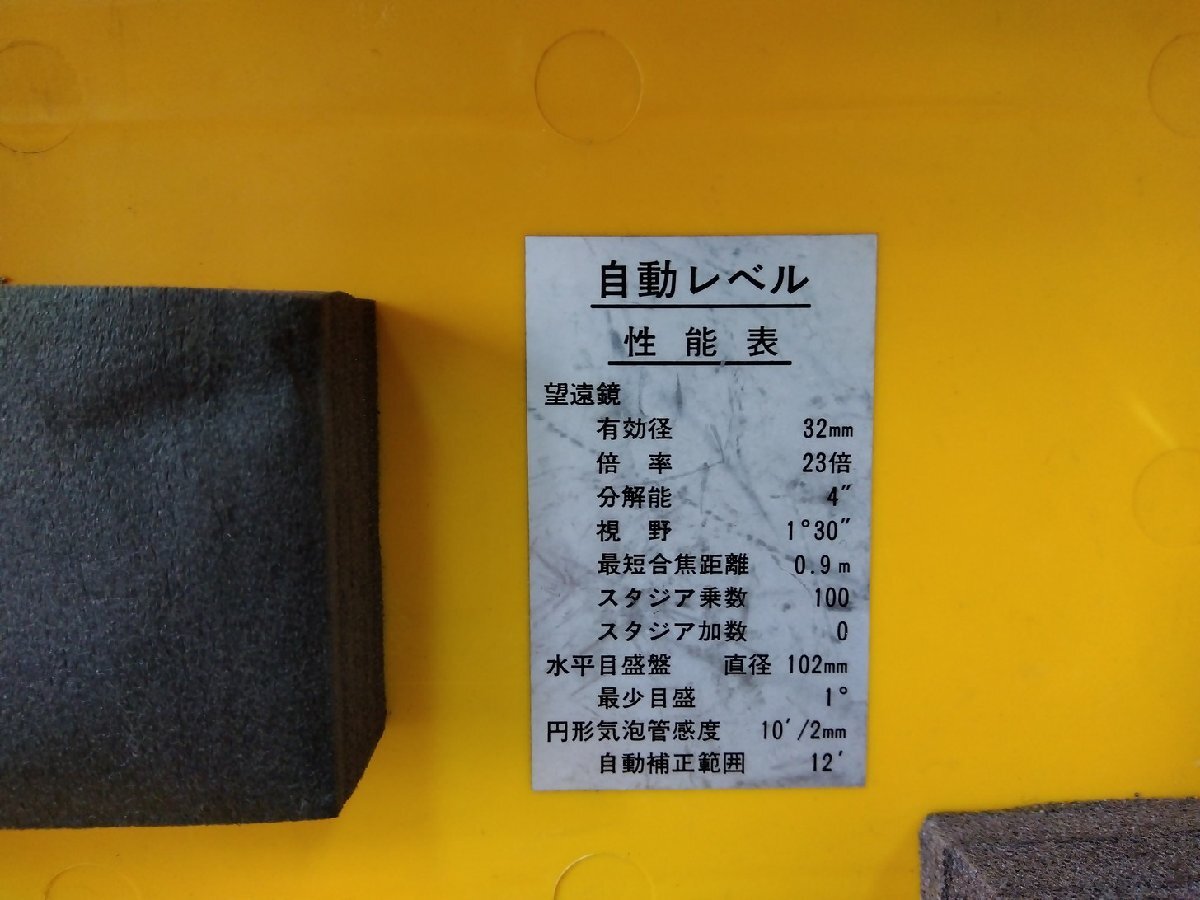 自動レベル
性 能 表
望遠鏡
有効径 32mm
倍 率 23倍
分解能 4″
視 野 1°30″
最短合焦距離 0.9m
スタジア乗数 100
スタジア加数 0
水平目盛盤 直径 102mm
最少目盛 1°
円形気泡管感度 10′/2mm
自動補正範囲 12′